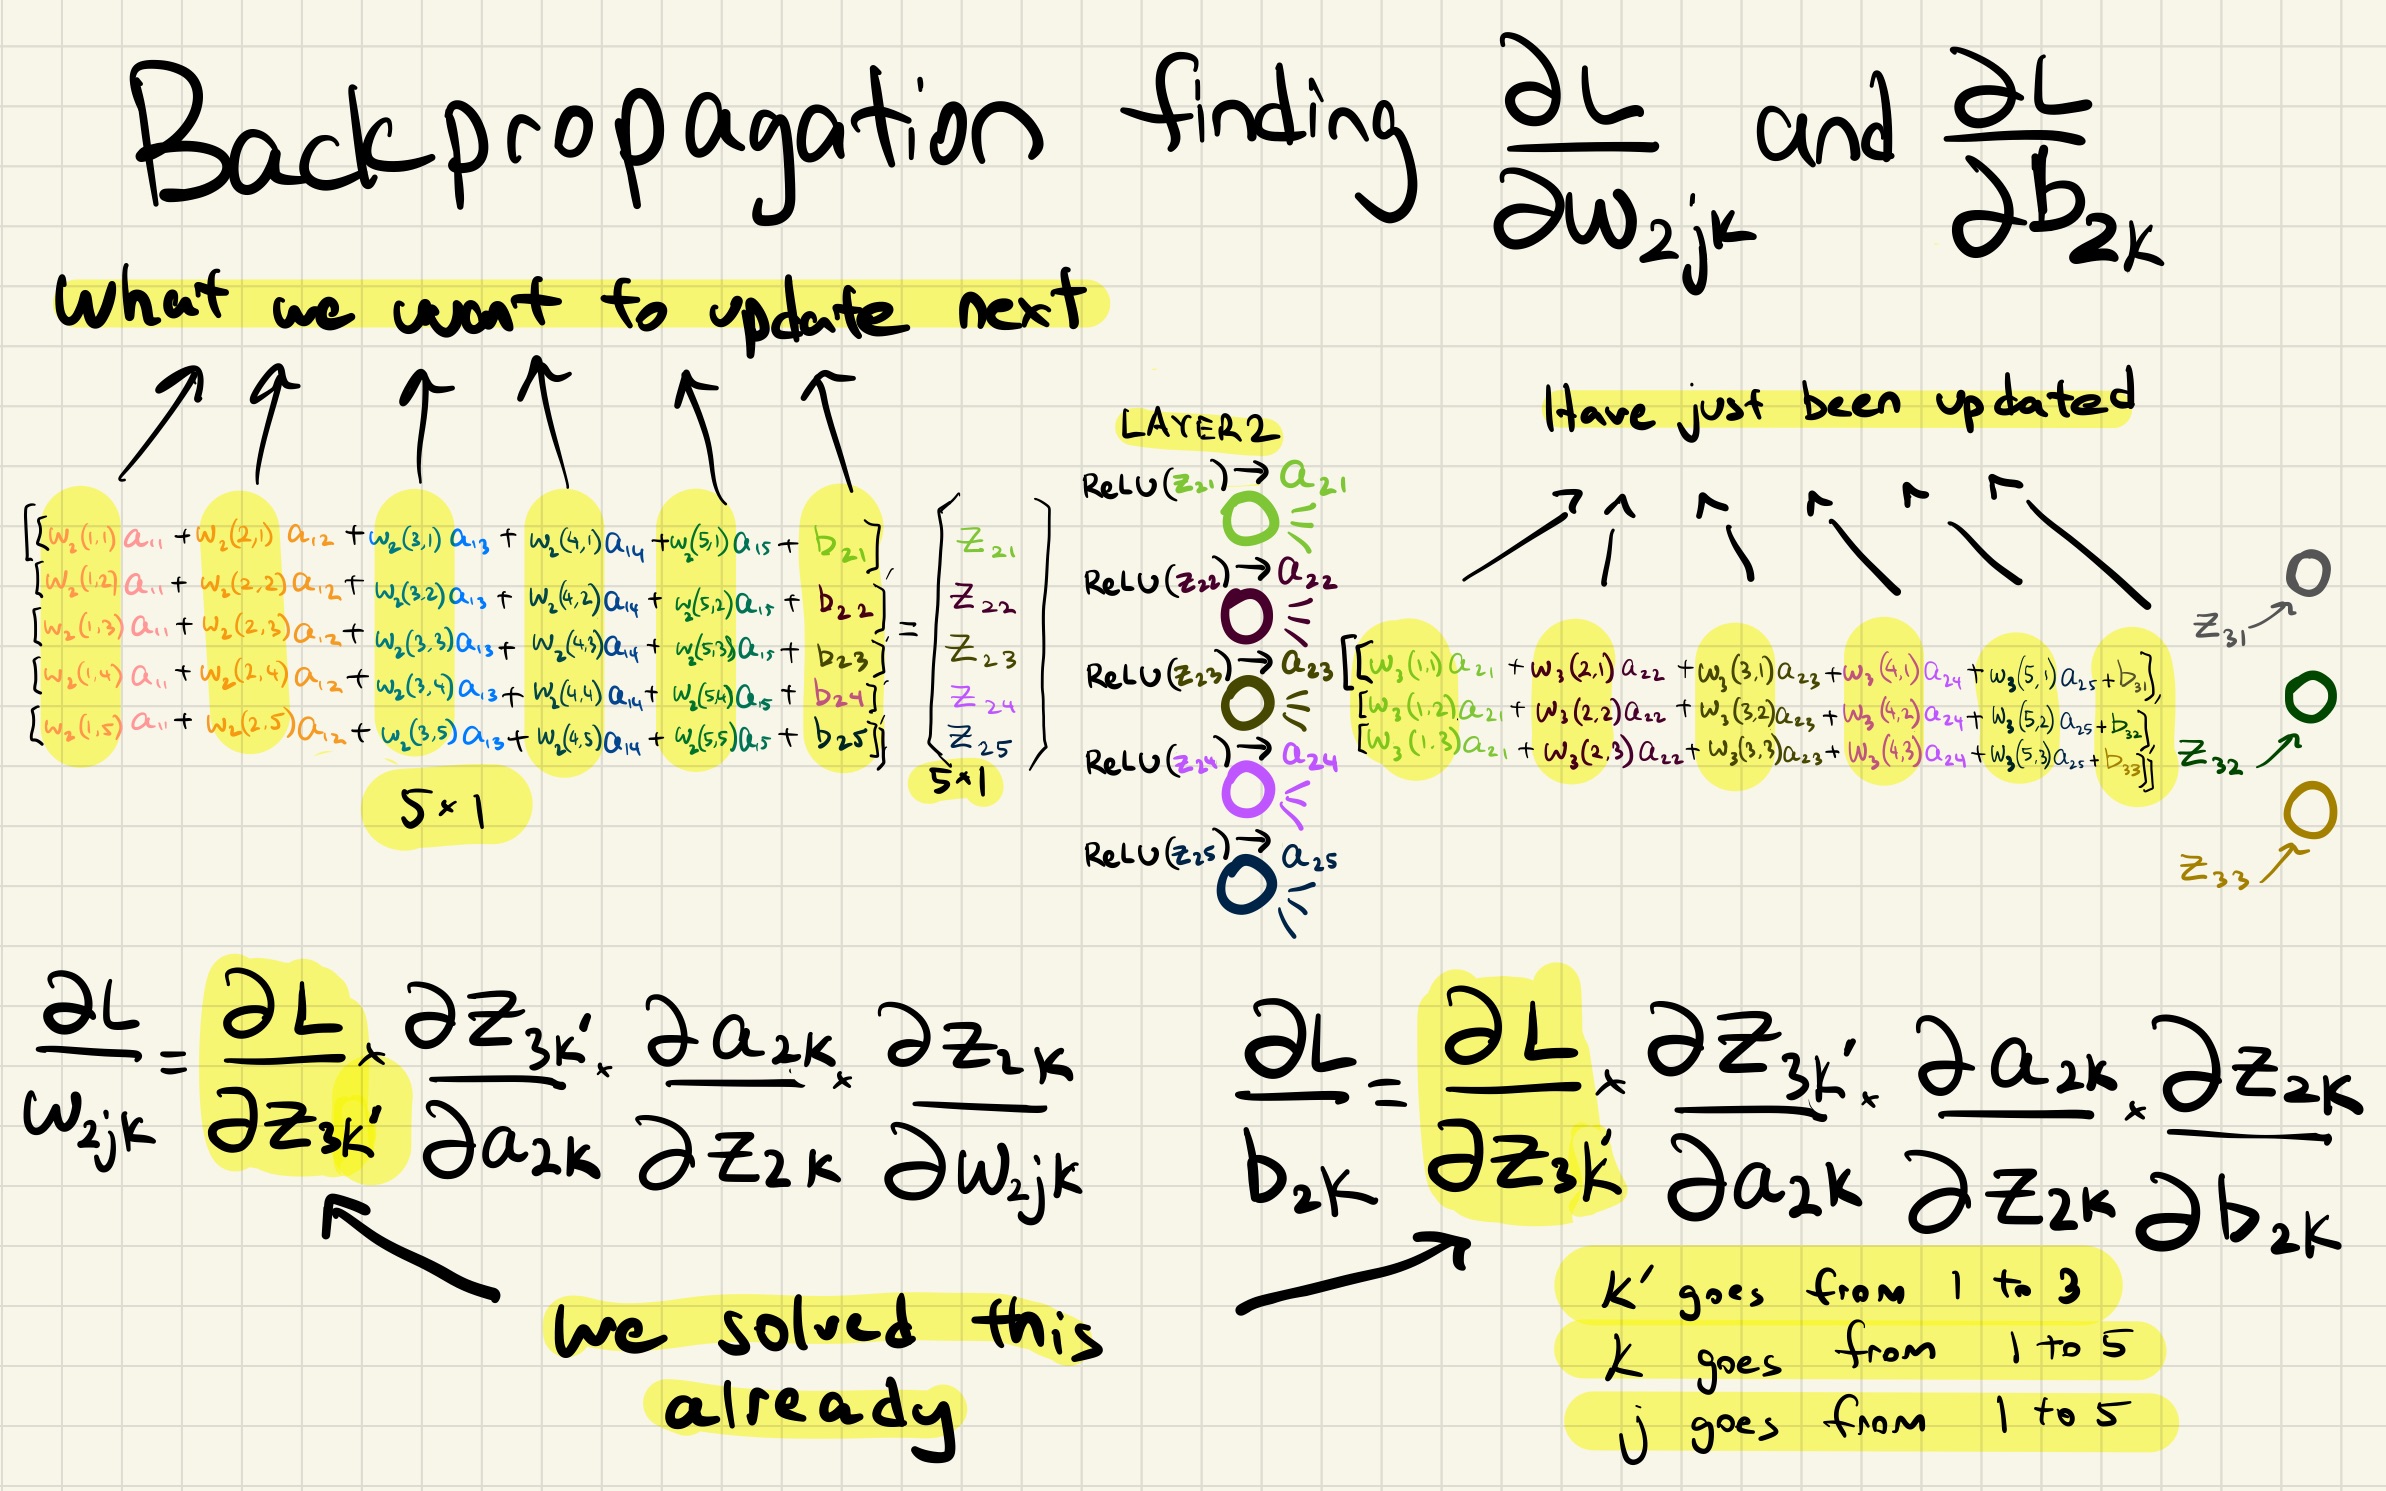 Backpropagation finding ∂L/∂w₂ⱼₖ and ∂L/∂b₂ₖ
What we want to update next
Have just been updated
LAYER 2
[[w₂(1,1) a₁₁ + w₂(2,1) a₁₂ + w₂(3,1) a₁₃ + w₂(4,1) a₁₄ + w₂(5,1) a₁₅ + b₂₁]
[w₂(1,2) a₁₁ + w₂(2,2) a₁₂ + w₂(3,2) a₁₃ + w₂(4,2) a₁₄ + w₂(5,2) a₁₅ + b₂₂]
[w₂(1,3) a₁₁ + w₂(2,3) a₁₂ + w₂(3,3) a₁₃ + w₂(4,3) a₁₄ + w₂(5,3) a₁₅ + b₂₃]
[w₂(1,4) a₁₁ + w₂(2,4) a₁₂ + w₂(3,4) a₁₃ + w₂(4,4) a₁₄ + w₂(5,4) a₁₅ + b₂₄]
[w₂(1,5) a₁₁ + w₂(2,5) a₁₂ + w₂(3,5) a₁₃ + w₂(4,5) a₁₄ + w₂(5,5) a₁₅ + b₂₅]]
5×1
=
z₂₁
z₂₂
z₂₃
z₂₄
z₂₅
5×1
ReLU(z₂₁) → a₂₁
ReLU(z₂₂) → a₂₂
ReLU(z₂₃) → a₂₃
ReLU(z₂₄) → a₂₄
ReLU(z₂₅) → a₂₅
[[w₃(1,1) a₂₁ + w₃(2,1) a₂₂ + w₃(3,1) a₂₃ + w₃(4,1) a₂₄ + w₃(5,1) a₂₅ + b₃₁],
[w₃(1,2) a₂₁ + w₃(2,2) a₂₂ + w₃(3,2) a₂₃ + w₃(4,2) a₂₄ + w₃(5,2) a₂₅ + b₃₂],
[w₃(1,3) a₂₁ + w₃(2,3) a₂₂ + w₃(3,3) a₂₃ + w₃(4,3) a₂₄ + w₃(5,3) a₂₅ + b₃₃]]
z₃₁
z₃₂
z₃₃
∂L/w₂ⱼₖ = ∂L/∂z₃ₖ′ × ∂z₃ₖ′/∂a₂ₖ × ∂a₂ₖ/∂z₂ₖ × ∂z₂ₖ/∂w₂ⱼₖ
∂L/b₂ₖ = ∂L/∂z₃ₖ′ × ∂z₃ₖ′/∂a₂ₖ × ∂a₂ₖ/∂z₂ₖ × ∂z₂ₖ/∂b₂ₖ
we solved this
already
k′ goes from 1 to 3
k goes from 1 to 5
j goes from 1 to 5